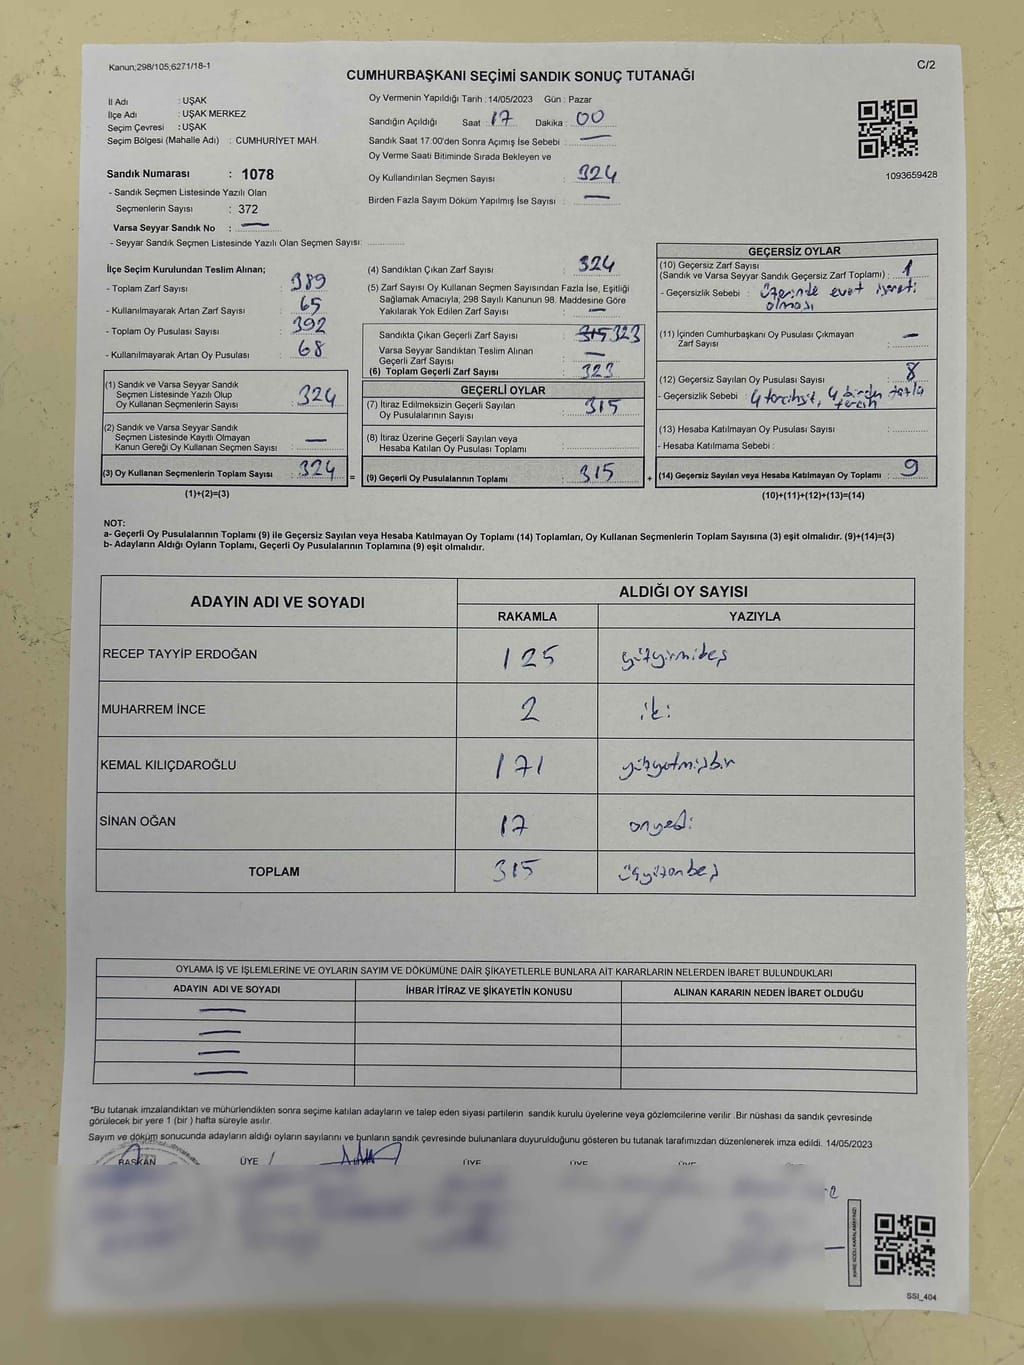 Kanun;298/105,6271/18-1
C/2
CUMHURBAŞKANI SEÇİMİ SANDIK SONUÇ TUTANAĞI
İl Adı : UŞAK
İlçe Adı : UŞAK MERKEZ
Seçim Çevresi : UŞAK
Seçim Bölgesi (Mahalle Adı) : CUMHURİYET MAH.
Sandık Numarası : 1078
- Sandık Seçmen Listesinde Yazılı Olan
Seçmenlerin Sayısı : 372
Varsa Seyyar Sandık No : —
- Seyyar Sandık Seçmen Listesinde Yazılı Olan Seçmen Sayısı:
Oy Vermenin Yapıldığı Tarih : 14/05/2023 Gün : Pazar
Sandığın Açıldığı Saat : 17 Dakika : 00
Sandık Saat 17:00'den Sonra Açımış İse Sebebi : —
Oy Verme Saati Bitiminde Sırada Bekleyen ve
Oy Kullandırılan Seçmen Sayısı : 324
Birden Fazla Sayım Döküm Yapılmış İse Sayısı : —
1093659428
İlçe Seçim Kurulundan Teslim Alınan;
- Toplam Zarf Sayısı : 389
- Kullanılmayarak Artan Zarf Sayısı : 65
- Toplam Oy Pusulası Sayısı : 392
- Kullanılmayarak Artan Oy Pusulası : 68
(1) Sandık ve Varsa Seyyar Sandık
Seçmen Listesinde Yazılı Olup
Oy Kullanan Seçmenlerin Sayısı : 324
(2) Sandık ve Varsa Seyyar Sandık
Seçmen Listesinde Kayıtlı Olmayan
Kanun Gereği Oy Kullanan Seçmen Sayısı : —
(3) Oy Kullanan Seçmenlerin Toplam Sayısı : 324
(1)+(2)=(3)
(4) Sandıktan Çıkan Zarf Sayısı : 324
(5) Zarf Sayısı Oy Kullanan Seçmen Sayısından Fazla İse, Eşitliği
Sağlamak Amacıyla, 298 Sayılı Kanunun 98. Maddesine Göre
Yakılarak Yok Edilen Zarf Sayısı : —
Sandıkta Çıkan Geçerli Zarf Sayısı : 315 323
Varsa Seyyar Sandıktan Teslim Alınan
Geçerli Zarf Sayısı : —
(6) Toplam Geçerli Zarf Sayısı : 323
GEÇERLİ OYLAR
(7) İtiraz Edilmeksizin Geçerli Sayılan
Oy Pusulalarının Sayısı : 315
(8) İtiraz Üzerine Geçerli Sayılan veya
Hesaba Katılan Oy Pusulası Toplamı :
= (9) Geçerli Oy Pusulalarının Toplamı : 315
GEÇERSİZ OYLAR
(10) Geçersiz Zarf Sayısı
(Sandık ve Varsa Seyyar Sandık Geçersiz Zarf Toplamı) : 1
- Geçersizlik Sebebi : üzerinde evet işareti
olması
(11) İçinden Cumhurbaşkanı Oy Pusulası Çıkmayan
Zarf Sayısı : —
(12) Geçersiz Sayılan Oy Pusulası Sayısı : 8
- Geçersizlik Sebebi : 4 tercihsiz, 4 birden fazla
tercih
(13) Hesaba Katılmayan Oy Pusulası Sayısı :
- Hesaba Katılmama Sebebi :
+ (14) Geçersiz Sayılan veya Hesaba Katılmayan Oy Toplamı : 9
(10)+(11)+(12)+(13)=(14)
NOT:
a- Geçerli Oy Pusulalarının Toplamı (9) ile Geçersiz Sayılan veya Hesaba Katılmayan Oy Toplamı (14) Toplamları, Oy Kullanan Seçmenlerin Toplam Sayısına (3) eşit olmalıdır. (9)+(14)=(3)
b- Adayların Aldığı Oyların Toplamı, Geçerli Oy Pusulalarının Toplamına (9) eşit olmalıdır.
ADAYIN ADI VE SOYADI ALDIĞI OY SAYISI
RAKAMLA YAZIYLA
RECEP TAYYİP ERDOĞAN 125 yüzyirmibeş
MUHARREM İNCE 2 iki
KEMAL KILIÇDAROĞLU 171 yüzyetmişbir
SİNAN OĞAN 17 onyedi
TOPLAM 315 üçyüzonbeş
OYLAMA İŞ VE İŞLEMLERİNE VE OYLARIN SAYIM VE DÖKÜMÜNE DAİR ŞİKAYETLERLE BUNLARA AİT KARARLARIN NELERDEN İBARET BULUNDUKLARI
ADAYIN ADI VE SOYADI İHBAR İTİRAZ VE ŞİKAYETİN KONUSU ALINAN KARARIN NEDEN İBARET OLDUĞU
*Bu tutanak imzalandıktan ve mühürlendikten sonra seçime katılan adayların ve talep eden siyasi partilerin sandık kurulu üyelerine veya gözlemcilerine verilir .Bir nüshası da sandık çevresinde
görülecek bir yere 1 (bir ) hafta süreyle asılır.
Sayım ve döküm sonucunda adayların aldığı oyların sayılarını ve bunların sandık çevresinde bulunanlara duyurulduğunu gösteren bu tutanak tarafımızdan düzenlenerek imza edildi. 14/05/2023
BAŞKAN ÜYE ÜYE ÜYE ÜYE
SSI_404